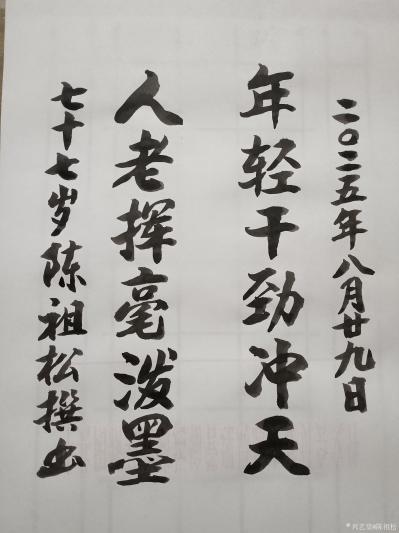 二〇二五年八月廿九日
年轻干劲冲天
人老挥毫泼墨
七十七岁陈祖松撰书